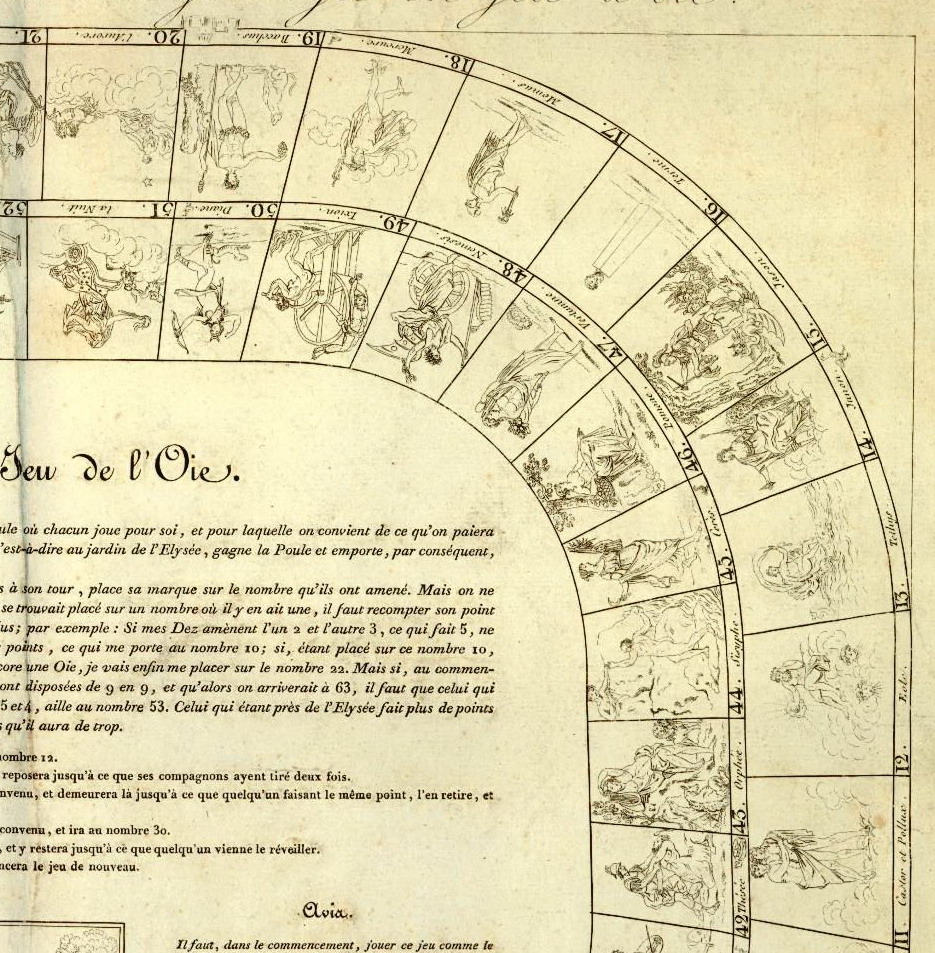 Jeu de l'Oie.
ule où chacun joue pour soi, et pour laquelle on convient de ce qu'on paiera
'est-à-dire au jardin de l'Elysée, gagne la Poule et emporte, par conséquent,
s à son tour, place sa marque sur le nombre qu'ils ont amené. Mais on ne
se trouvait placé sur un nombre où il y en ait une, il faut recompter son point
us; par exemple: Si mes Dez amènent l'un 2 et l'autre 3, ce qui fait 5, ne
points, ce qui me porte au nombre 10; si, étant placé sur ce nombre 10,
core une Oie, je vais enfin me placer sur le nombre 22. Mais si, au commen-
ont disposées de 9 en 9, et qu'alors on arriverait à 63, il faut que celui qui
5 et 4, aille au nombre 53. Celui qui étant près de l'Elysée fait plus de points
s qu'il aura de trop.
ombre 12.
reposera jusqu'à ce que ses compagnons ayent tiré deux fois.
nvenu, et demeurera là jusqu'à ce que quelqu'un faisant le même point, l'en retire, et
convenu, et ira au nombre 30.
, et y restera jusqu'à ce que quelqu'un vienne le réveiller.
ncera le jeu de nouveau.
Avis.
Il faut, dans le commencement, jouer ce jeu comme le
11. Castor et Pollux.
12. Eole.
13. Tethye
14. Junon.
15. Jason.
16. Terme.
17. Momus.
18. Mercure.
19. Bacchus.
20. l'Aurore.
21.
42 Thésée
43. Orphée.
44. Sisyphe.
45. Circé.
46. Pomone.
47. Vertumne.
48. Nemesis.
49. Ixion.
50. Diane.
51. la Nuit.
52